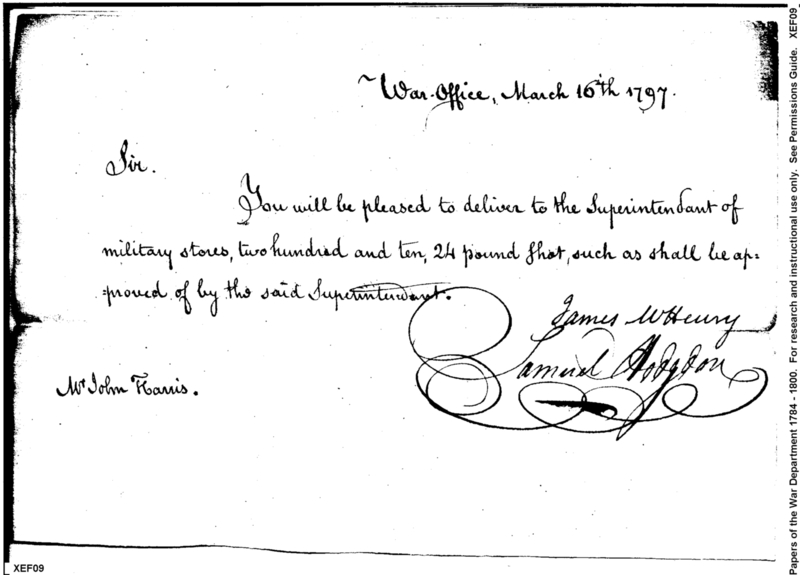 War-Office, March 16th 1797.
Sir.
You will be pleased to deliver to the Superintendant of
military stores, two hundred and ten, 24 pound shot, such as shall be ap=
=proved of by the said Superintendant.
James McHenry
Samuel Hodgdon
Mr John Harris.
XEF09
Papers of the War Department 1784 - 1800. For research and instructional use only. See Permissions Guide. XEF09